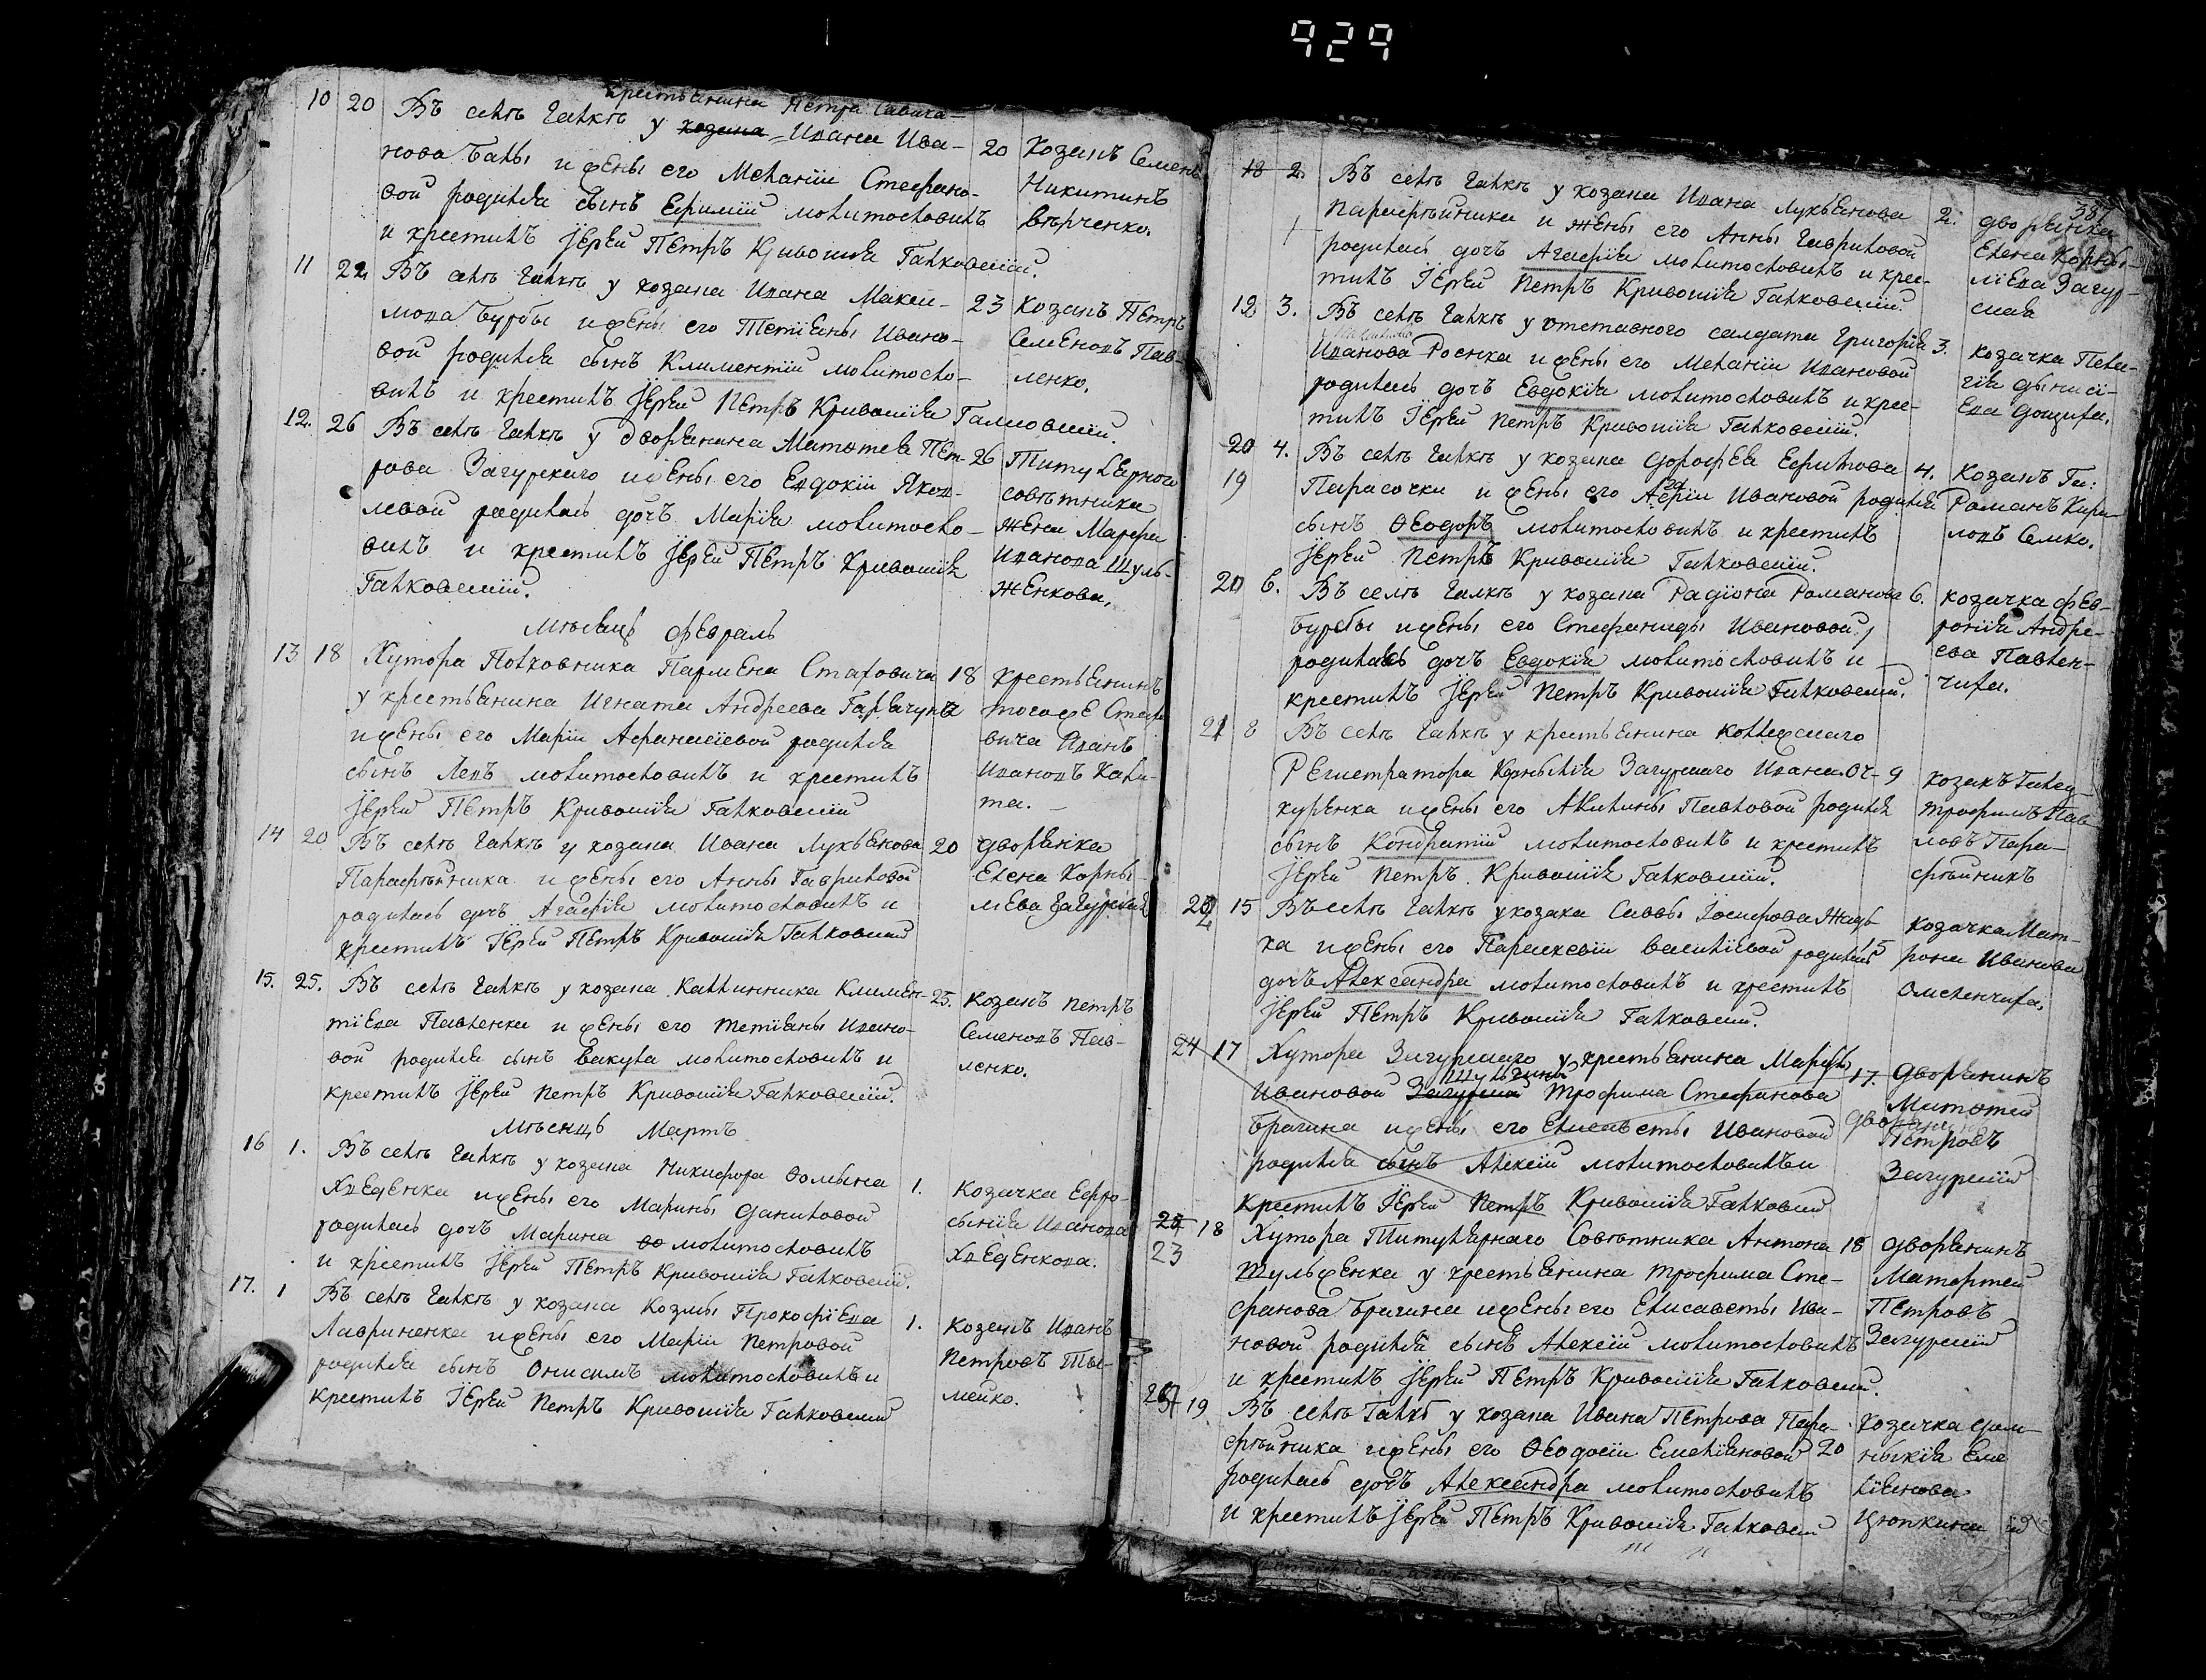 929
крестьянина Петра Савича
10 20 Въ селѣ Галкѣ у козака Ивана Ива-
нова Бабы и жены его Меланіи Стефано-
вой родился сынъ Ефимій молитвословилъ
и крестилъ Іерей Петръ Кривошія Галковскій.
20 Козакъ Семенъ
Никитинъ
11 22 Въ селѣ Галкѣ у козака Ивана Макси-
мова Бурбы и жены его Тетіяны Ивано-
вой родился сынъ Климентій молитвосло-
вилъ и крестилъ Іерей Петръ Кривошія Галковскій.
23 Козакъ Петръ
Семеновъ Пав-
ленко.
12. 26 Въ селѣ Галкѣ у дворянина Матвѣя Пет-
рова Загурскаго и жены его Евдокіи Яков-
левой родилась дочь Марія молитвосло-
вилъ и крестилъ Іерей Петръ Кривошія
Галковскій.
26 Титулярного
совѣтника
жена Марфа
Иванова Шуль-
женкова.
Мѣсяцъ февраль
13 18 Хутора Полковника Пармена Стаховича
у крестьянина Игната Андреева
и жены его Маріи Афанасіевой родился
сынъ Левъ молитвословилъ и крестилъ
Іерей Петръ Кривошія Галковскій
18 крестьянинъ
тогожъ Стахо
вича Иванъ
Ивановъ Кали-
та.
14 20 Въ селѣ Галкѣ у козака Ивана Лукьянова
Парафѣйника и жены его Анны Гавриловой
родилась дочь Агафія молитвословилъ и
крестилъ Іерей Петръ Кривошія Галковскій
20 дворянка
Елена Корнѣ-
лѣева Загурская
15. 25. Въ селѣ Галкѣ у козака Каллиника Климен-
тіева Павленка и жены его Тетіяны Ивано-
вой родился сынъ Вакула молитвословилъ и
крестилъ Іерей Петръ Кривошія Галковскій.
25. козакъ Петръ
Семеновъ Пав-
ленко.
Мѣсяцъ Мартъ
16 1. Въ селѣ Галкѣ у козака Никифора Фомына
Хведенка и жены его Марины Даниловой
родилась дочь Марина молитвословилъ
и крестилъ Іерей Петръ Кривошія Галковскій.
1. козачка Ефро-
сынія Иванова
Хведенкова.
17. 1 Въ селѣ Галкѣ у козака Козмы Прокофіева
Лавриненка и жены его Маріи Петровой
родился сынъ Онисимъ молитвословилъ и
крестилъ Іерей Петръ Кривошія Галковскій
1. козакъ Иванъ
Петровъ Ты-
мейко.
18 2. Въ селѣ Галкѣ у козака Ивана Лукьянова
Парафѣйника и жены его Анны Гавриловой
родилась дочь Агафія молитвословилъ и крес-
тилъ Іерей Петръ Кривошія Галковскій.
2. дворянка
Елена Корнѣ-
лѣева Загур-
ская
387
12 3. Въ селѣ Галкѣ у отставного салдата Григорія
Иванова Роенка и жены его Меланіи Ивановой
родилась дочь Евдокія молитвословилъ и крес-
тилъ Іерей Петръ Кривошія Галковскій.
3. козачка Пела-
гія
20 4. Въ селѣ Галкѣ у козака Дорофея Ефимова
19 Парасочки и жены его Ивановой родился
сынъ Ѳеодоръ молитвословилъ и крестилъ
Іерей Петръ Кривошія Галковскій.
4. Козакъ Га:
Романъ Кири-
ловъ Семко.
20 6. Въ селѣ Галкѣ у козака Радіона Романова
Бурбы и жены его Стефаниды Ивановой
родилась дочь Евдокія молитвословилъ и
крестилъ Іерей Петръ Кривошія Галковскій.
6. козачка Фев-
ронія Андре-
ева Павлен-
чиха.
21 8 Въ селѣ Галкѣ у крестьянина коллежскаго
Регистратора Корнѣлія Загурскаго Ивана Оч-
куренка и жены его Акилины Павловой родился
сынъ Кондратій молитвословилъ и крестилъ
Іерей Петръ Кривошія Галковскій.
9 козакъ
Трофимъ Пав
ловъ Пара-
фѣйникъ
15 Въ селѣ Галкѣ у козака Саввы Іосифова
ка и жены его Параскевіи Василіевой родилась
дочь Александра молитвословилъ и крестилъ
Іерей Петръ Кривошія Галковскій.
15 козачка Мат-
рона Иванова
Омеленчиха.
24 17 Хутора Загурскаго у крестьянина Марфы
Ивановой Загурской Трофима Стефанова
Брагина и жены его Елисаветы Ивановой
родился сынъ Алексій молитвословилъ и
крестилъ Іерей Петръ Кривошія Галковскій
17. дворянинъ
Матвей
Петровъ
Загурскій
18 Хутора Титулярнаго Совѣтника Антона
23 Шульженка у крестьянина Трофима Сте-
фанова Брагина и жены его Елисаветы Ива-
новой родился сынъ Алексій молитвословилъ
и крестилъ Іерей Петръ Кривошія Галковскій.
18 дворянинъ
Матвей
Петровъ
Загурскій
19 Въ селѣ Галкѣ у козака Ивана Петрова Пара-
фѣйника и жены его Ѳеодосіи Емеліановой
родилась дочь Александра молитвословилъ
и крестилъ Іерей Петръ Кривошія Галковскій
20 козачка Дом-
ныкія Еме
ліянова